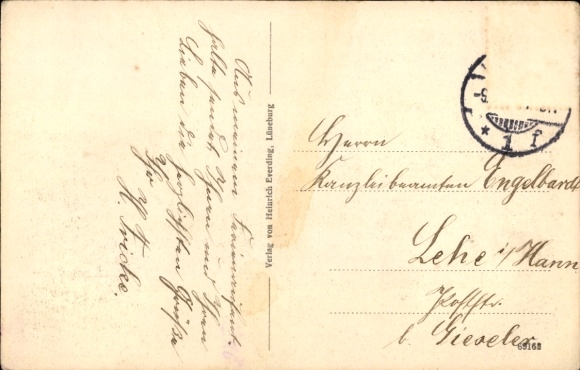 Aus meinem Ferienaufent-
halte sendet Ihnen und Ihren
Lieben die herzlichsten Grüße
Ihr
H. Fricke.
Verlag von Heinrich Everding, Lüneburg
Herrn
Kanzleibeamten Engelhardt
Lehe i/Hann
Poststr.
b. Gieseler
69162
* 1 f